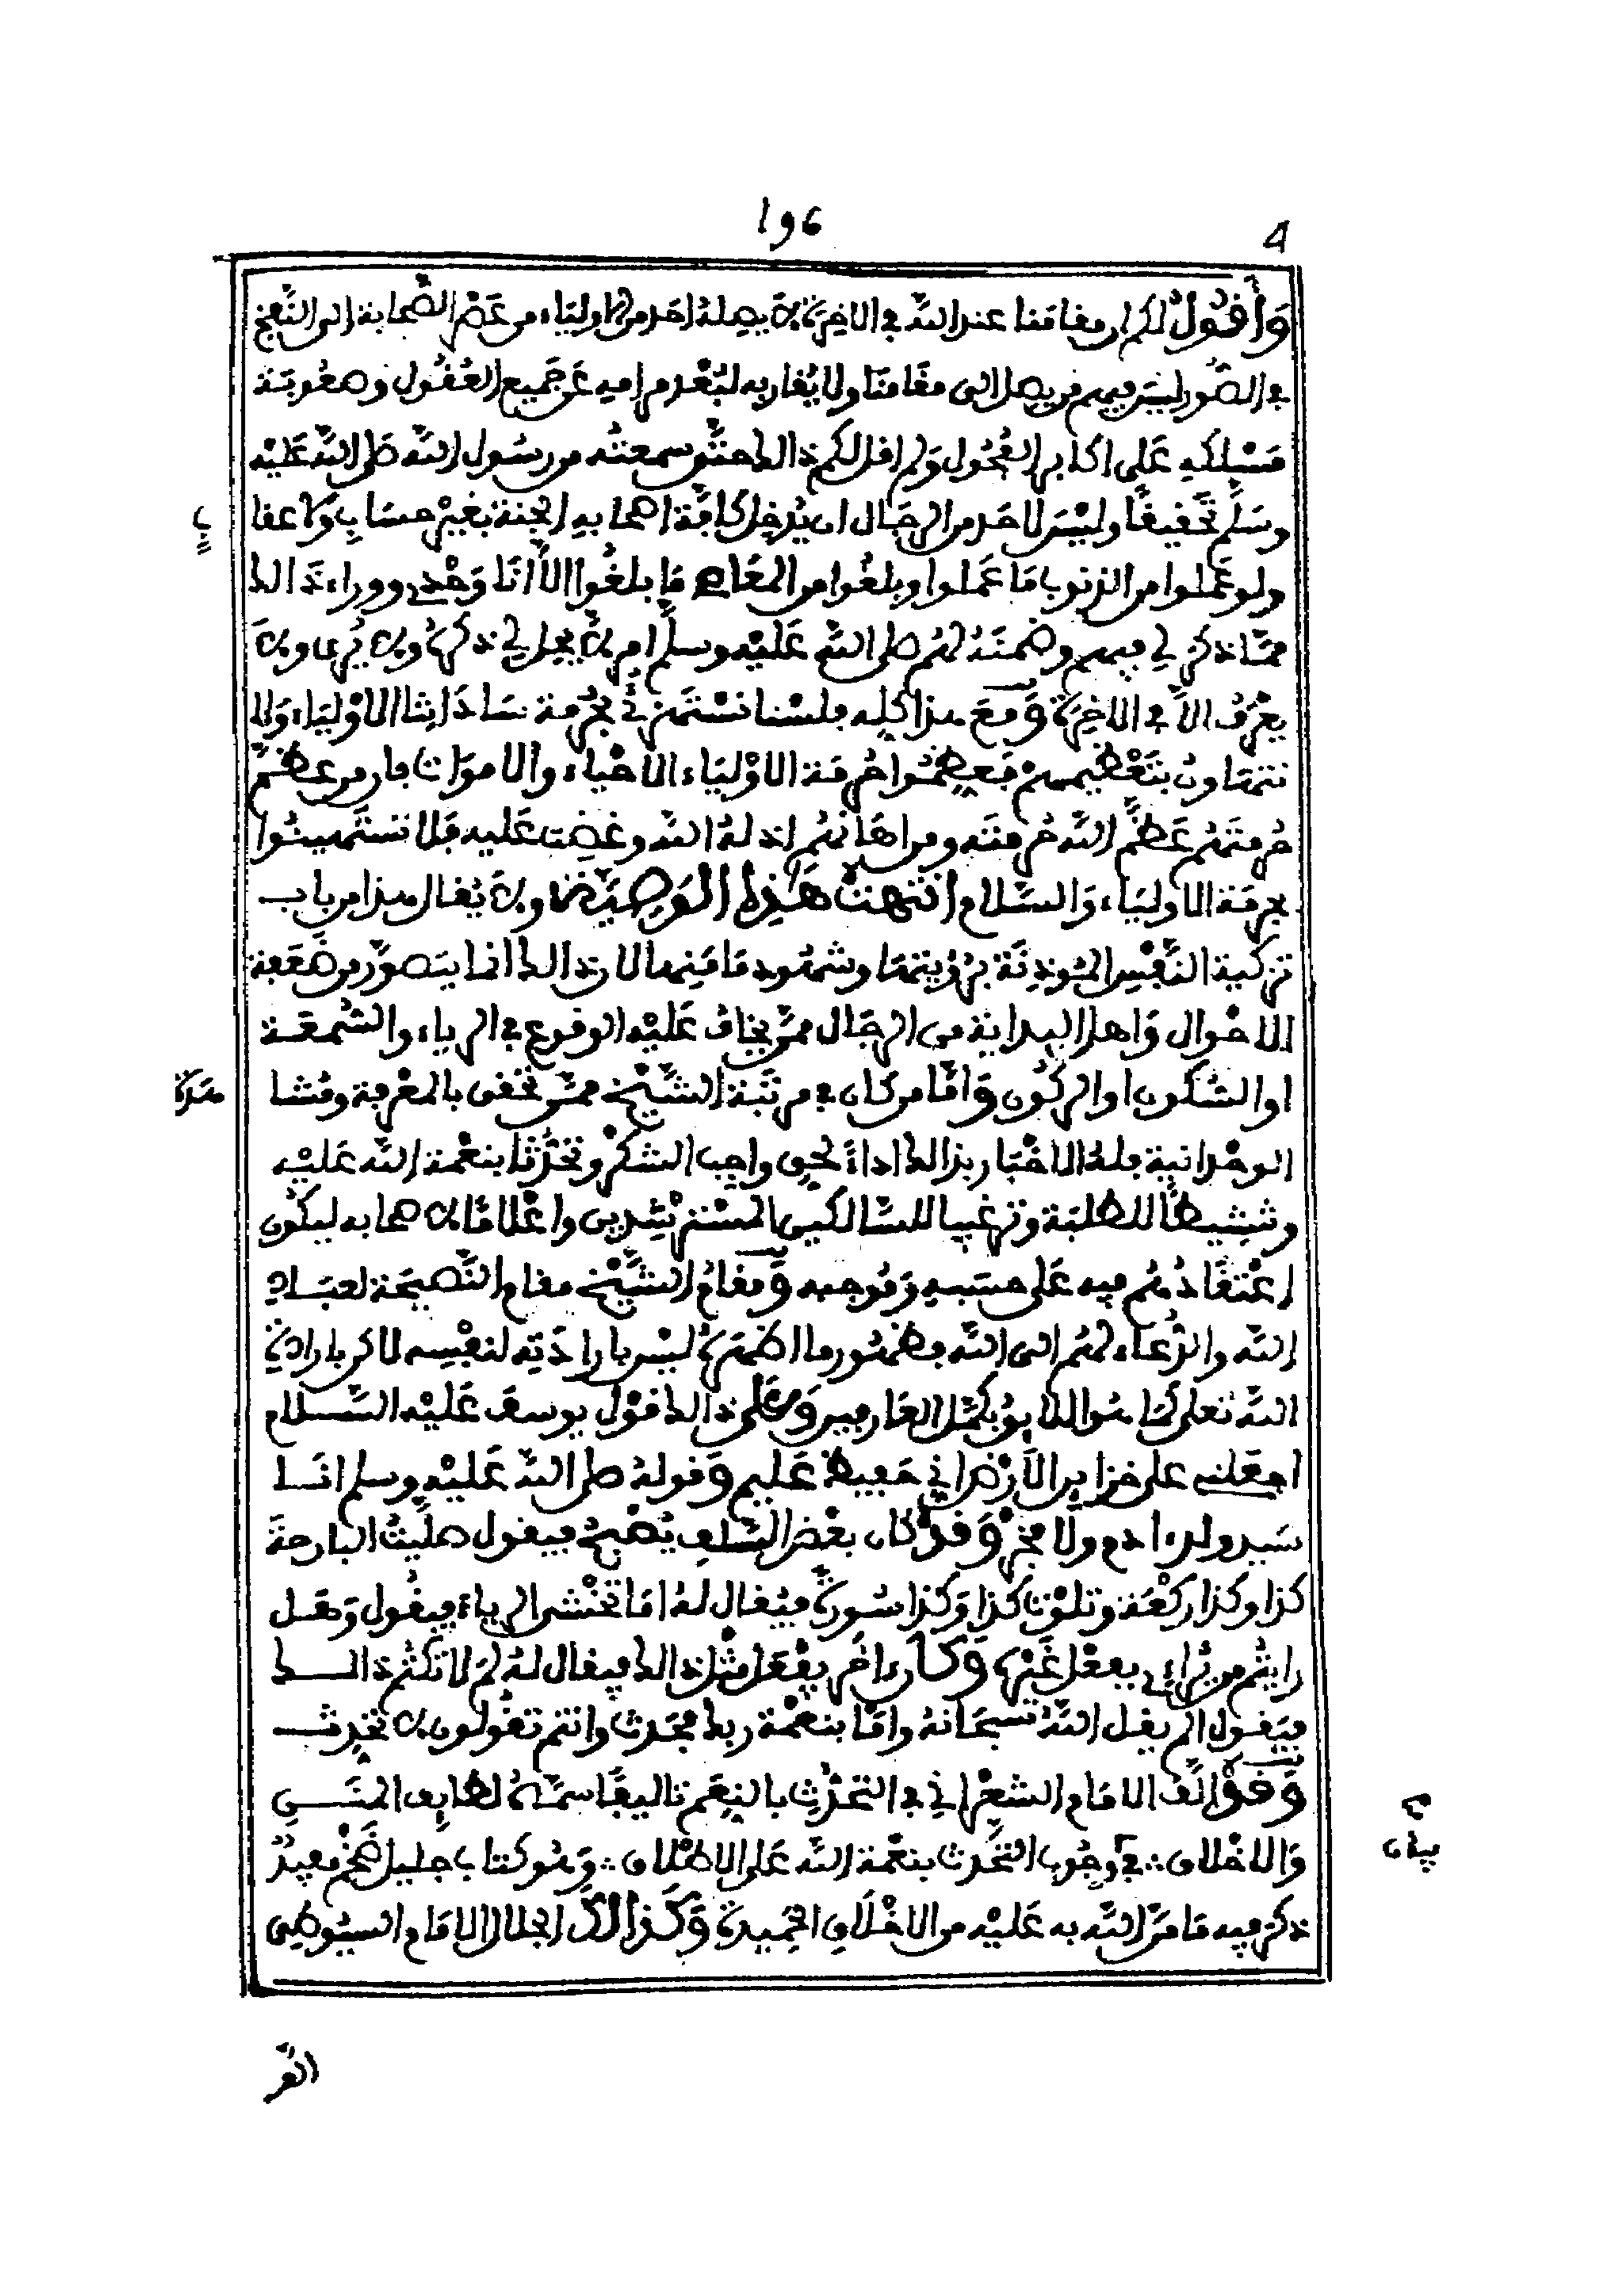 196
4
وَأَقُولُ لكم ان مقامَنا عند الله في الآخرة لا يصله أحد من الأولياء من عَصْر الصَّحابة إلى النَّفخ
في الصُّور ليس فيهم من يصل الى مقامَنا ولا يُقاربه لبُعْد مرامه عَن جَميع العُقُول وصعُوبَة
مَسْلكه عَلى أكابر الفُحُول وَلم اقل لكم ذالك حتَّى سمعتُه من رسُول الله صلى الله عَليْه
وسَلَّم تحقيقًا وليْسَ لاحَد من الرجَال ان يُدخل كَافَّة اصحابه الجنة بغيْر حسَابٍ وَلا عقا
بٍ
ولو عَملوا من الذنوب مَا عَملوا وبلغُوا من المعَاصي مَا بلغُوا الاَّ أنَا وَحْدي ووراء ذَالك
ممَّا ذكر لي فيهم وضمنَهُ لهُم صلى الله عَليْه وسلَّم امر لا يحل لي ذكرهُ ولا يُرى ولا
يعْرَفُ الاَّ في الآخرَة وَمعَ هذا كله فلسْنا نسْتهزئ بحُرمة سَادَاتِنا الأوْليَاء وَلا
نتهَاونُ بتَعْظيمهمْ فَعظمُوا حُرمَة الاوْليَاء الاحْياء والامْوَات فان من عظَّم
حُرمتَهُم عَظَّم الله حُرمتَه ومن اهَانَهُم اذلهُ الله وغضبَ عَليه فَلا تستَهينُوا
بحرمَة الاوليَاء وَالسَّلام انتهتْ هَذه الوَصِيَّة ولا يُقال هذا من باب
تزكية النَّفْس المُوذنَة برُؤيتهَا وشهُود مَا منهَا لان ذالك انما يتصوَّر من ضَعَفة
الاحْوال وَاهل البدَاية من الرجَال ممَّن يخَاف عَليْه الوقوع في الرياء والسُّمعَة
او السُّكون او الركُون وَامَّا من كان في مرتبَة الشَّيْخ ممَّن تحقق بالمعْرفة ومُشا
هَدَة
الوحْدانية فلهُ الاخبَار بذالك اداءً لحق واجب الشكْر وتحَدُّثا بنعْمة الله عَليْه
وتنشيطًا للطلبَة وترغيبا للسَّالكين المسْترْشِدين واعْلامًا لاصحابه ليكُون
اعْتقَادُهُم فيه عَلى حسَبه وَمُوجبه وَمقامُ الشَّيْخ مقام النَّصيحَة لعبَاد
الله والدُّعاء لهُم الى الله فظهُور ما اظهَرَهُ ليْس بإرادَته لنفْسِه لاكن بارادَة
الله تعلى كمَا هُو اللائق بكمَّل العَارفين وَعَلى ذالك قوْل يوسفَ عَليْه السَّلام
اجعَلنى على خزائن الأَرْض اني حَفيظ عَليم وَقوله صلى الله عَليْه وسلم انَا
سَيد ولد ادم ولا فخرَ وَقَدْ كان بعْض السَّلف يُصْبحُ فيقول صليْتُ البارحَة
كذا وكذا ركْعَة وتلوْت كذَا وَكذا سُورة فيُقال لهُ امَا تخْشى الرياء فيقُول وَهَل
رايتُم من يُراءي بفعْل غَيْره وَكانَ ءاخَر يفْعَل مثْل ذالك فيقال لهُ لمَ لا تكتُم ذالك
فيَقول الم يقل الله سُبحَانهُ وامَّا بنعْمة ربك فحَدث وانتم تقُولون لا تحَدِث
وَقَدْ الَّف الامَام الشعْراني في التحَدُّثِ بالنِعَم تاليفًا سمَّاهُ لطائف المنَـنِ
وَالاخْلاق ∴ في وجُوب التحَدث بنعْمة الله عَلى الاطْلاق ∴ وَهُو كتاب جليل ضَخْم مفيدٌ
في
بيان
ذكرَ فيه مَا منَّ الله به عَليْه من الاخْلَاق الحَميدة وَكَذَالكَ الجلال الامَام السيُوطِى